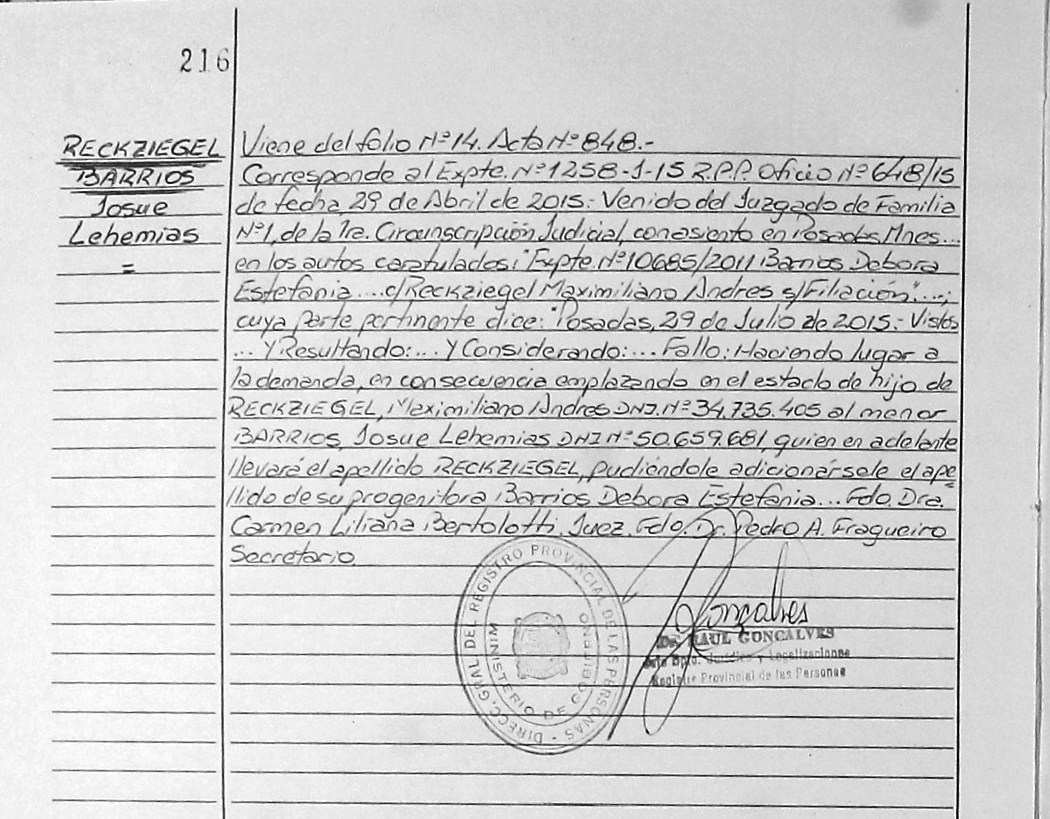 216
RECKZIEGEL
BARRIOS
Josue
Lehemias
=
Viene del folio Nº 14. Acta Nº 848.-
Corresponde al Expte. Nº 1258-J-15 R.P.P. Oficio Nº 648/15
de fecha, 29 de Abril de 2015.- Venido del Juzgado de Familia
Nº1, de la 1ra. Circunscripción Judicial, con asiento en Posadas Mnes...
en los autos caratulados: "Expte. Nº 10685/2011 Barrios Debora
Estefania... c/Reckziegel Maximiliano Andres s/Filiación"...;
cuya parte pertinente dice: "Posadas, 29 de Julio de 2015.- Vistos
... Y Resultando:... Y Considerando:... Fallo: Haciendo lugar a
la demanda, en consecuencia emplazando en el estado de hijo de
RECKZIEGEL, Maximiliano Andres DNI. Nº 34.735.405 al menor
BARRIOS, Josue Lehemias DNI Nº 50.659.681, quien en adelante
llevará el apellido RECKZIEGEL, pudiéndole adicionársele el ape=
llido de su progenitora Barrios Debora Estefania... Fdo. Dra.
Carmen Liliana Bertolotti. Juez. Fdo. Dr. Pedro A. Fragueiro
Secretario.
DIRECC. GRAL DEL REGISTRO PROVINCIAL DE LAS PERSONAS -
MINISTERIO DE GOBIERNO
Gonçalves
Dr. RAUL GONCALVES
Dpto. Jurídico y Legalizaciones
Registro Provincial de las Personas